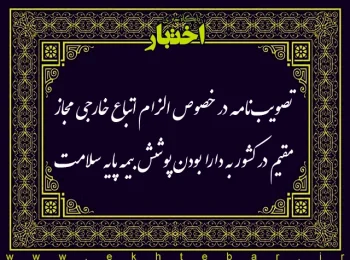 اختبار
تصویب‌نامه در خصوص الزام اتباع خارجی مجاز
مقیم در کشور به دارا بودن پوشش بیمه پایه سلامت
www.ekhtebar.ir